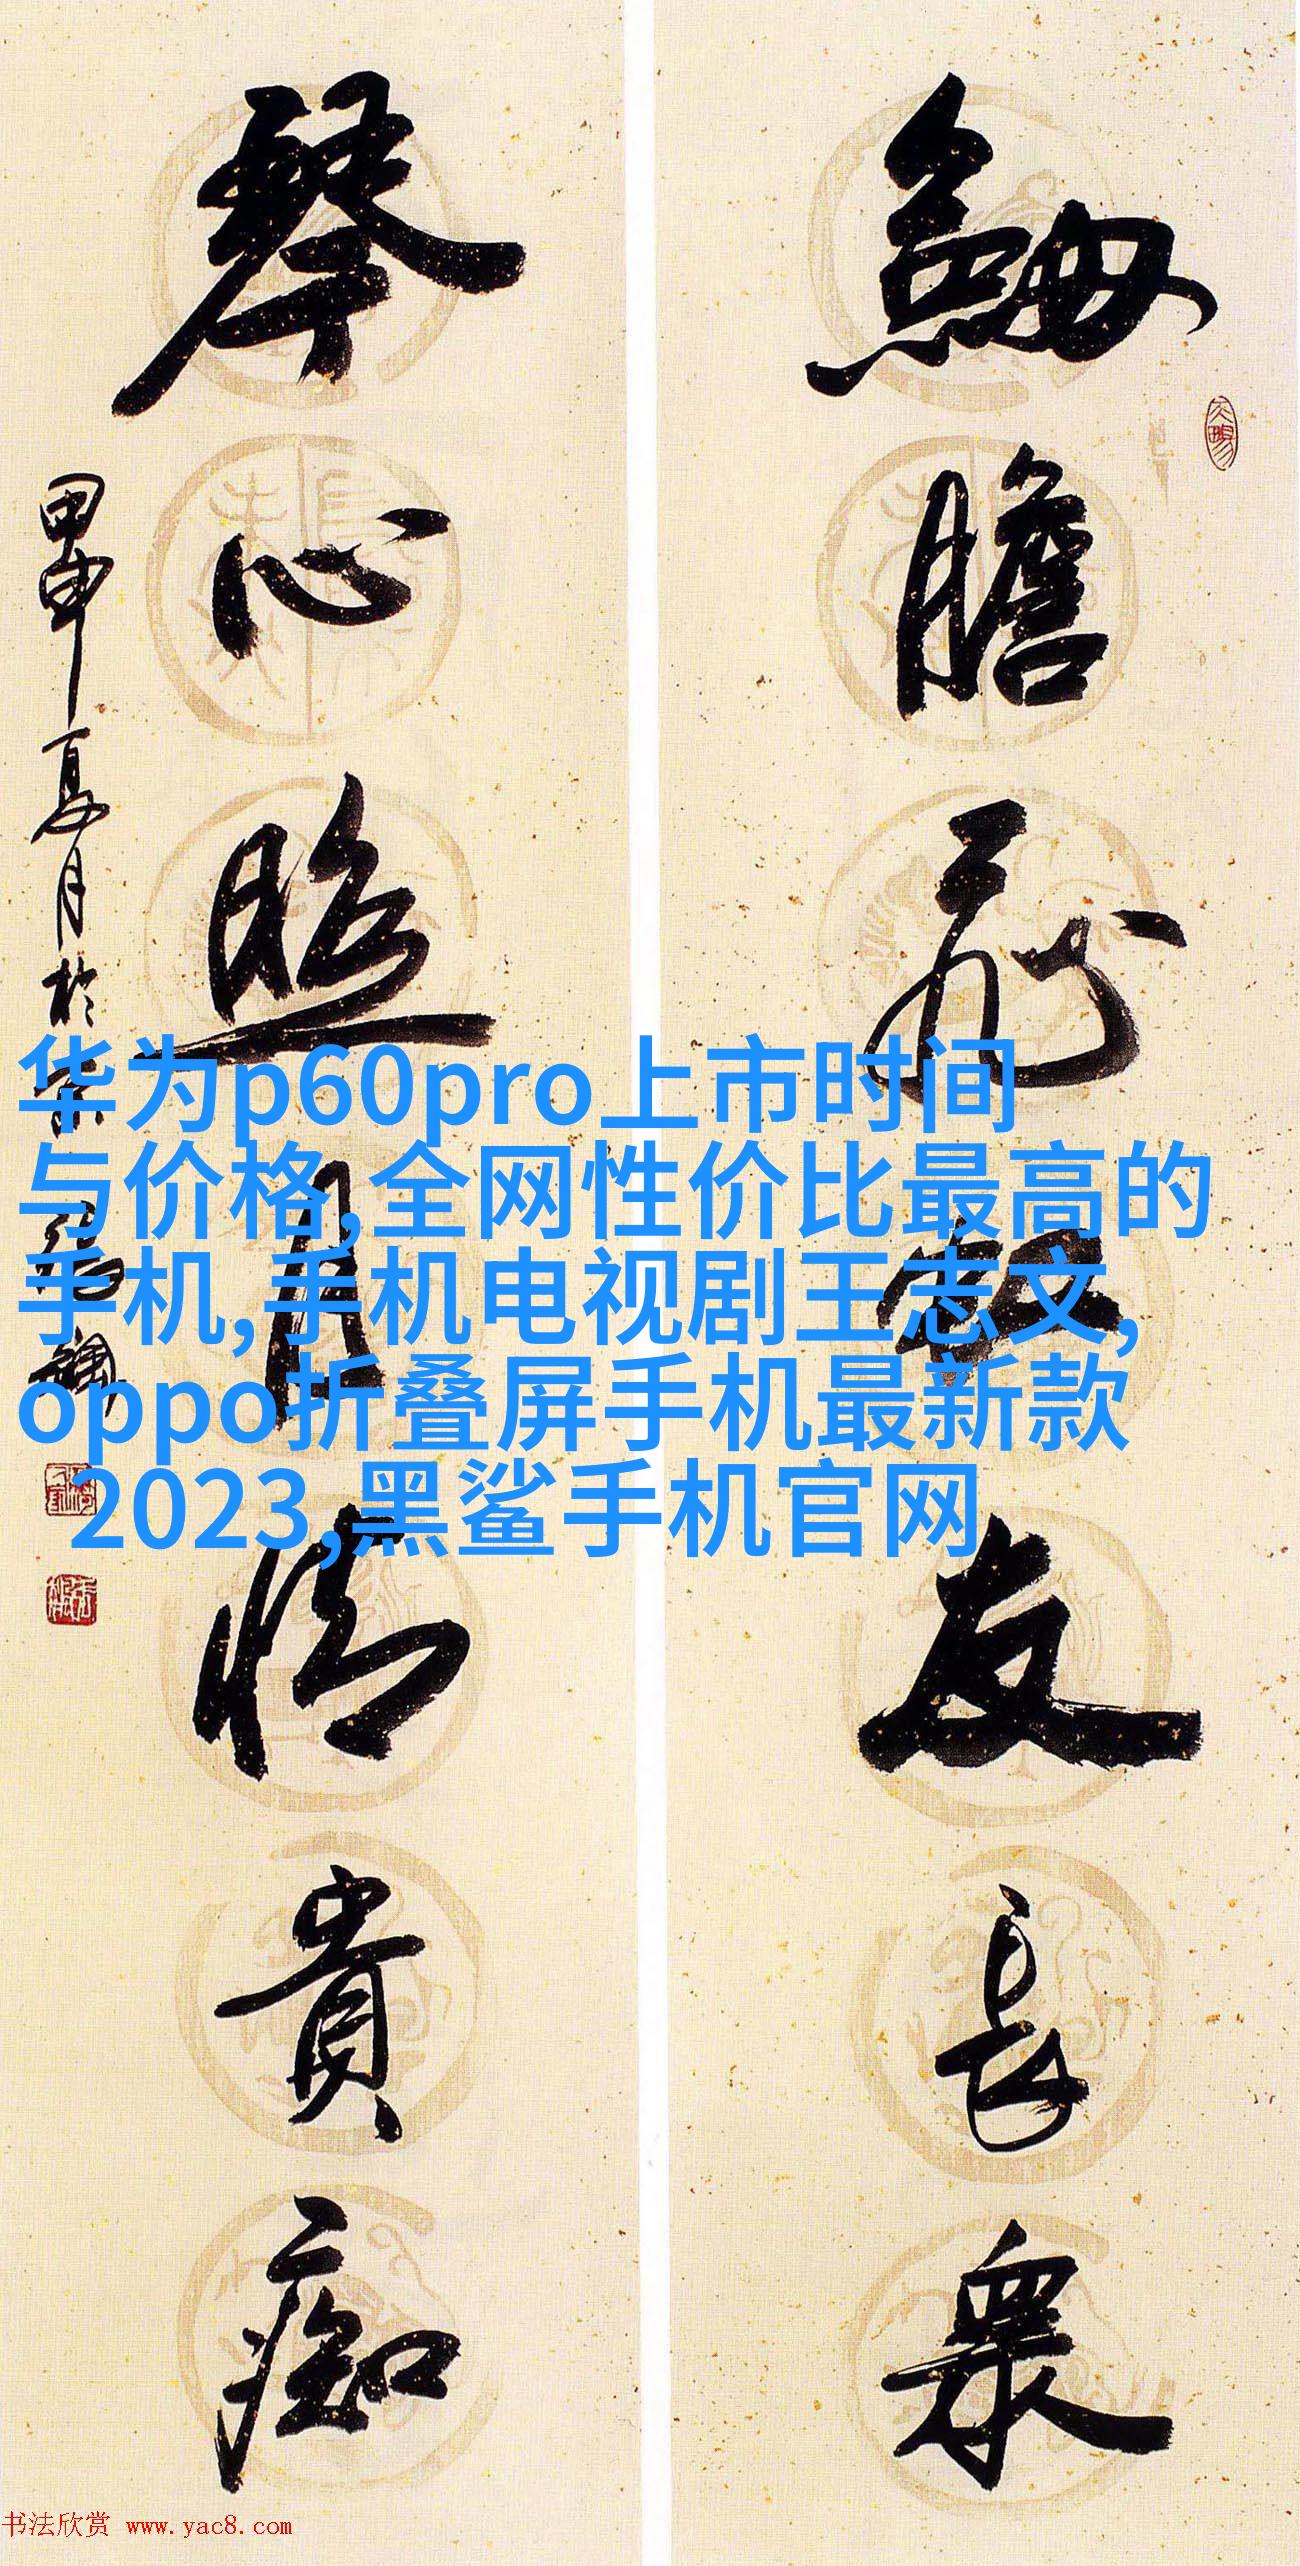 劍膽友長眾
琴心照月情貴痴
甲申夏月於
华为p60pro上市时间
与价格,全网性价比最高的
手机,手机电视剧王志文,
oppo折叠屏手机最新款
2023,黑鲨手机官网
书法欣赏 www.yac8.com